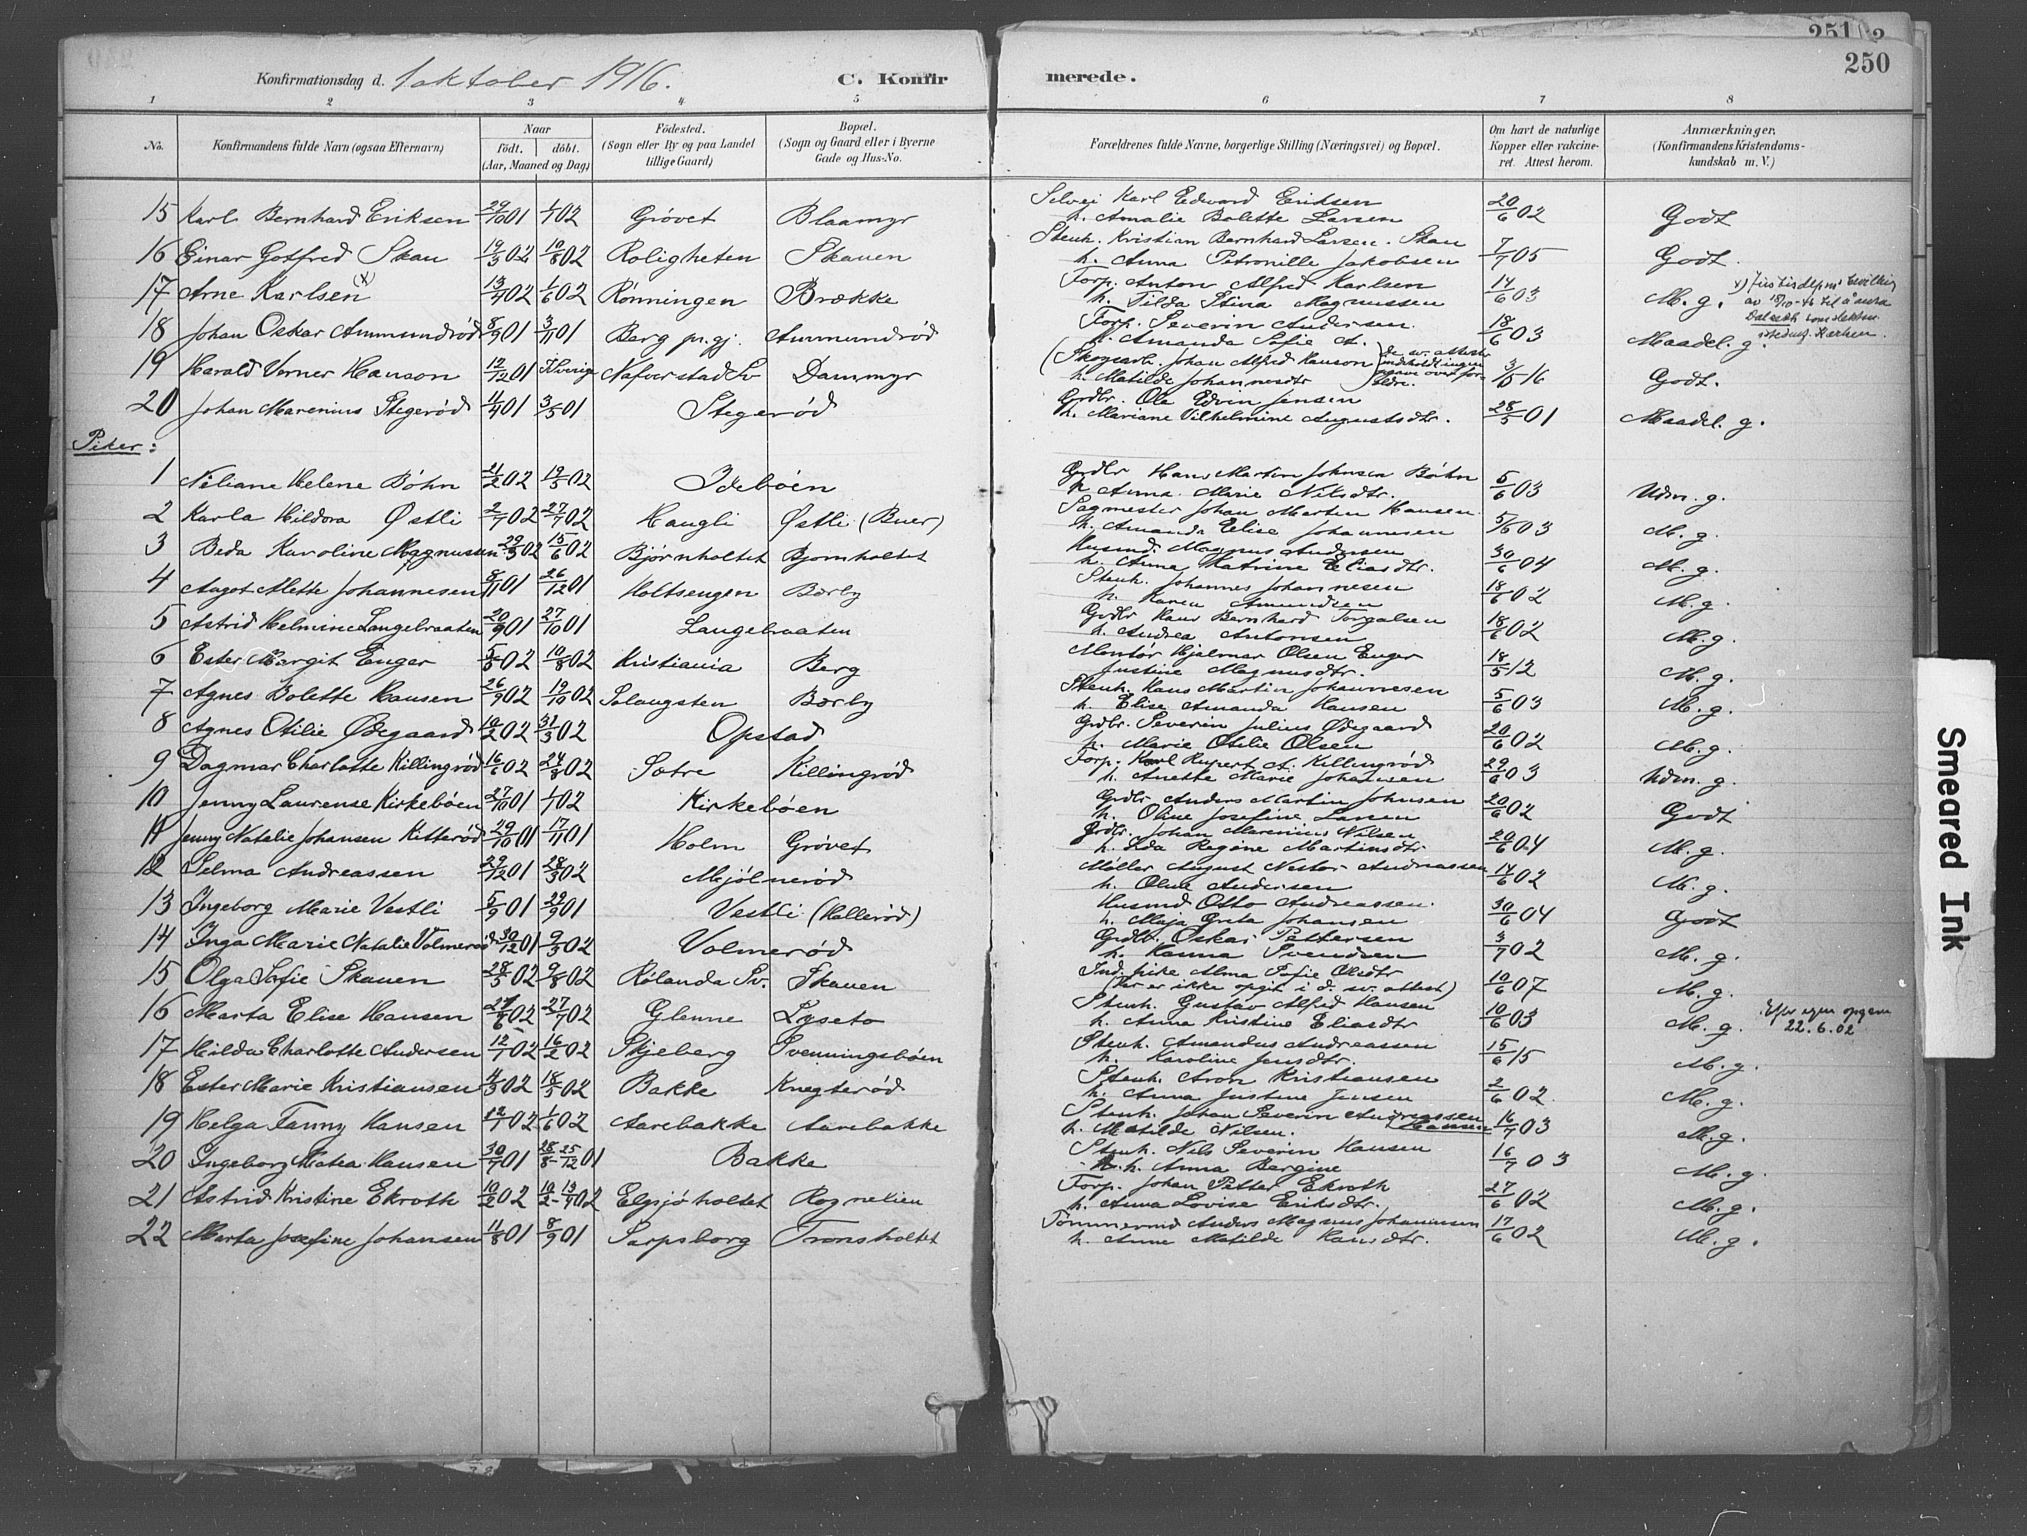 251 2
250
Konfirmationsdag d. 1 oktober 1916. C. Konfirmerede.
1 2 3 4 5 6 7 8
No. Konfirmandens fulde Navn (ogsaa Efternavn) Naar født. døbt. (Aar, Maaned og Dag) Fødested. (Sogn eller By og paa Landet tillige Gaard) Bopæl. (Sogn og Gaard eller i Byerne Gade og Hus-No. Forældrenes fulde Navne, borgerlige Stilling (Næringsvei) og Bopæl. Om havt de naturlige Kopper eller vakcineret. Attest herom. Anmærkninger, (Konfirmandens Kristendomskundskab m. V.)
15 Karl Bernhard Eriksen 29/10 01 1/1 02 Grøvet Blaamyr Selvei Karl Edward Eriksen h. Amalie Bolette Larsen 20/6 02 Godt
16 Einar Gotfred Skau 19/3 02 10/8 02 Roligheten Skauen Stenh. Kristian Bernhard Larsen Skau h. Anna Petronille Jakobsen 7/7 05 Godt.
17 Arne Karlsen x) 13/4 02 1/6 02 Rønningen Brække Forp. Anton Alfred Karlsen h. Tilda Stina Magnussen 14/6 03 M. g. x) Justisdepts bevilling av 18/10-46 til å anta Dalsekk som slektsn. istedenf. Karlsen.
18 Johan Oskar Ammundrød 8/9 01 3/11 01 Berg pr.gj. Ammundrød Forp. Severin Andersen h. Amanda Sofie A. 18/6 03 Maadel. g.
19 Harald Verner Hanson 12/12 01 I Sverige Naverstad Sv Dammyr (Skogsarb. Johan Alfred Hanson h. Matilde Johannesdtr de sv. attester indholdt ingen opgave over forældre. 3/5 16 Godt.
20 Johan Marenius Stegerød 11/4 01 3/5 01 Stegerød Grdbr. Ole Edvin Jensen h. Mariane Vilhelmine Augustsdtr. 28/5 01 Maadel. g.
Piker:
1 Niliane Helene Bøhn 21/2 02 19/5 02 Idebøen Grdbr Hans Martin Johnsen Bøhn h Anna Marie Nilsdtr. 5/6 03 Udm. g.
2 Karla Hildora Østli 2/7 02 27/7 02 Haugli Østli (Buer) Sagmester Johan Martin Hansen h. Amanda Elise Johannesen 5/6 03 M. g.
3 Beda Karoline Magnussen 29/3 02 15/6 02 Bjørnholtet Bjørnholtet Husmd. Magnus Andersen h. Anna Katrine Eliasdtr. 30/6 04 M. g.
4 Aagot Mette Johannesen 8/11 01 26/12 01 Holtsengen Børby Stenh. Johannes Johannesen h. Karen Amundsen 18/6 02 M. g.
5 Astrid Helmine Langebraaten 20/9 01 27/10 01 Langebraaten Grdbr Hans Bernhard Torgalsen h. Andrea Antonsen 18/6 02 M. g.
6 Ester Margit Enger 5/5 02 10/8 02 Kristiania Berg Montør Hjalmar Olsen Enger Justine Magnusdtr. 18/5 12 M. g.
7 Agnes Bolette Hansen 26/9 02 19/10 02 Solaugsten Børby Stenh. Hans Martin Johannesen h. Elise Amanda Hansen 5/6 03 M. g.
8 Agnes Otilie Ødegaard 10/2 02 31/3 02 Opstad Grdbr. Severin Julius Ødegaard h. Marie Otilie Olsen 20/6 02 M. g.
9 Dagmar Charlotte Killingrød 16/6 02 24/8 02 Sætre Killingrød Forp. Karl Rupert A. Killingrød h. Anette Marie Johansen 29/6 03 Udm. g.
10 Jenny Laurense Kirkebøen 27/10 01 1/1 02 Kirkebøen Grdbr Anders Martin Johnsen h. Oline Josefine Larsen 20/6 02 Godt
11 Jenny Natalie Johansen Kitterød 29/10 01 17/11 01 Holm Grøvet Grdbr. Johan Marenius Nilsen h. Ida Regine Martinsdtr 20/6 04 M. g.
12 Selma Andreassen 29/12 01 28/3 02 Mjølnerød Møller August Nestor Andreassen h. Oline Andersen 14/6 02 M. g.
13 Ingeborg Marie Vestli 5/9 01 22/9 01 Vestli (Hallerød) Husmd Otto Andreassen h. Maja Greta Johansen 30/6 04 Godt
14 Inga Marie Natalie Volmerød 30/12 01 9/3 02 Volmerød Grdbr. Oskar Pettersen h. Hanna Svendsen 3/7 02 M. g.
15 Olga Sofie Skauen 28/5 02 9/8 02 Rølanda Sv. Skauen Ind. pike Alma Sofie Olsdtr (Far er ikke opgit i d. sv. attest) 10/6 07 M. g.
16 Marta Elise Hansen 27/6 02 27/7 02 Glenne Lyseto Stenh. Gustav Alfred Hansen h. Anna Kristine Eliasdtr 10/6 03 M. g. Efter egen opgave 22.6.02
17 Hilda Charlotte Andersen 12/1 02 16/2 02 Skjeberg Svenningsbøen Stenh. Amandus Andreassen h. Karoline Jensdtr. 15/6 15 M. g.
18 Ester Marie Kristiansen 4/3 02 18/5 02 Bakke Knegterød Stenh. Aron Kristiansen h. Anna Justine Jensen 2/6 02. M. g.
19 Helga Fanny Hansen 12/1 02 1/6 02 Aarebakke Aarebakke Stenh. Johan Severin Andreassen (Hansen) h. Matilde Nilsen. 16/7 03 M. g.
20 Ingeborg Matea Hansen 30/7 01 28/8 - 25/12 01 Bakke Stenh. Nils Severin Hansen h. Anna Bergine 16/7 03 M. g.
21 Astrid Kristine Ekroth 10/2 02 10/2 - 13/4 02 Elgsjøholtet Rognelien Forp. Johan Petter Ekroth h. Anna Lovise Eriksdtr. 27/6 02 M. g.
22 Marta Josefine Johansen 11/8 01 8/9 01 Sarpsborg Tronsholtet Tømmermd Anders Magnus Johannesen h. Anne Matilde Hansdtr. 17/6 02 M. g.
Smeared Ink